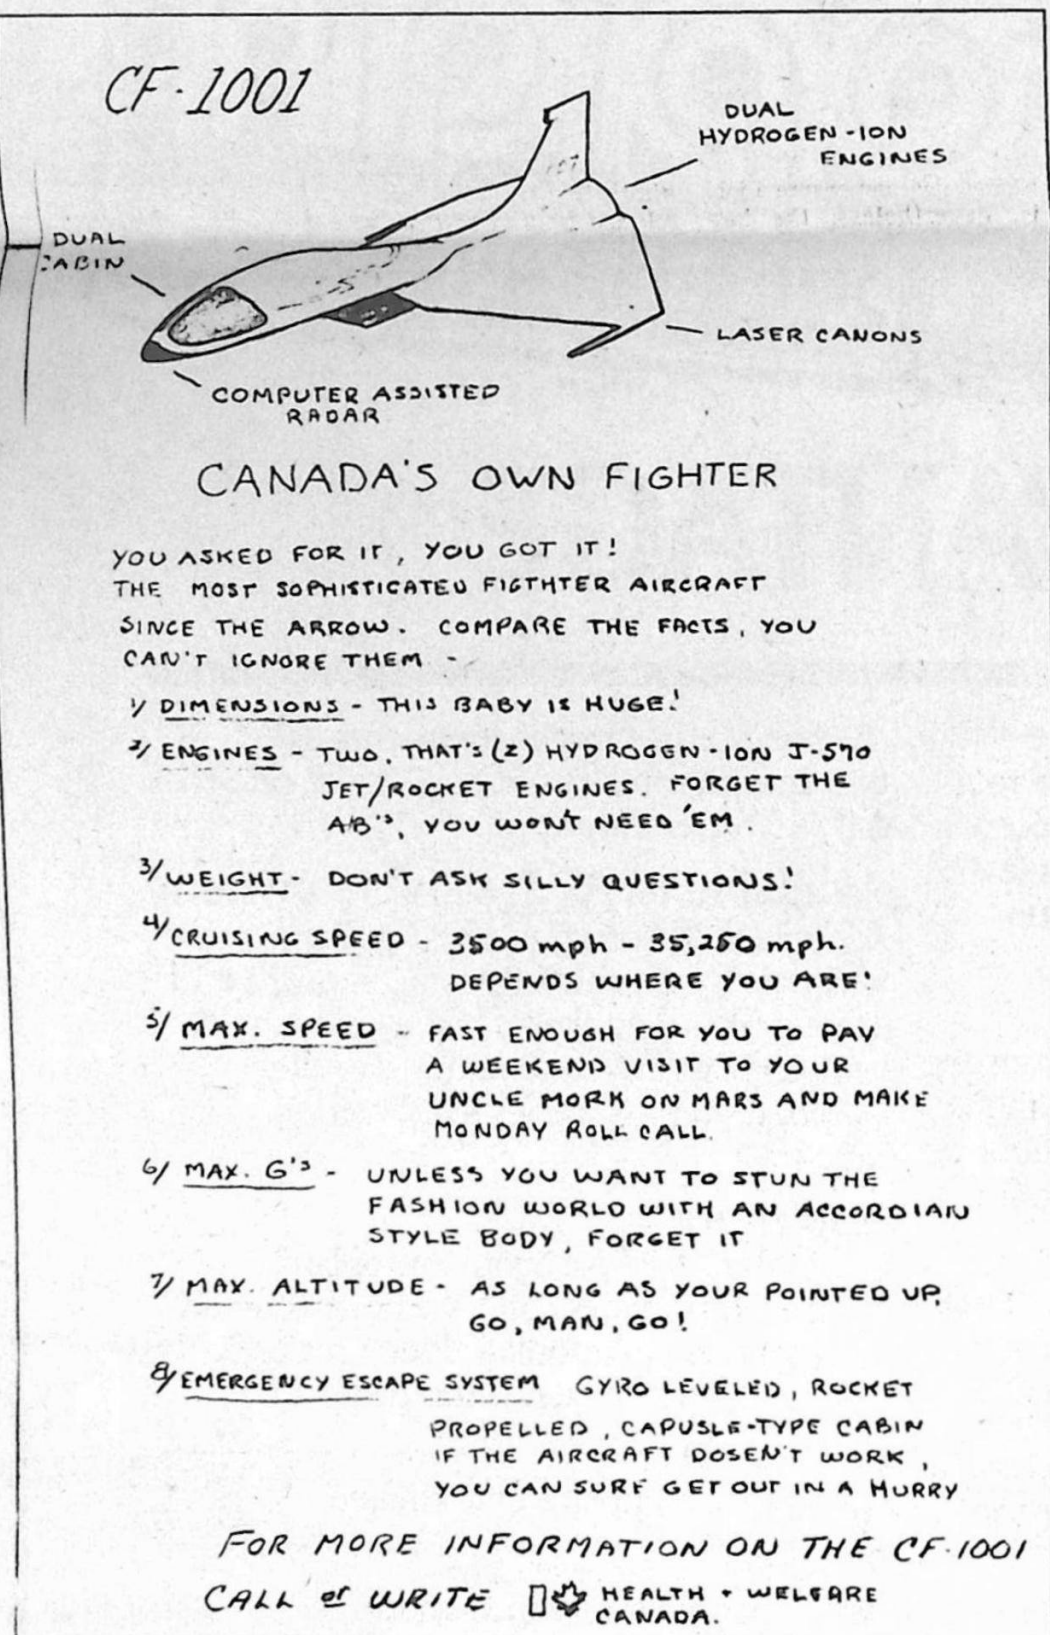 CF-1001
DUAL
HYDROGEN-ION
ENGINES
DUAL
CABIN
LASER CANONS
COMPUTER ASSISTED
RADAR
CANADA'S OWN FIGHTER
YOU ASKED FOR IT, YOU GOT IT!
THE MOST SOPHISTICATED FIGTHTER AIRCRAFT
SINCE THE ARROW. COMPARE THE FACTS, YOU
CAN'T IGNORE THEM -
1/ DIMENSIONS - THIS BABY IS HUGE!
2/ ENGINES - TWO, THAT'S (2) HYDROGEN-ION J-570
JET/ROCKET ENGINES. FORGET THE
A/B'S, YOU WON'T NEED 'EM.
3/ WEIGHT - DON'T ASK SILLY QUESTIONS!
4/ CRUISING SPEED - 3500 mph - 35,250 mph.
DEPENDS WHERE YOU ARE!
5/ MAX. SPEED - FAST ENOUGH FOR YOU TO PAY
A WEEKEND VISIT TO YOUR
UNCLE MORK ON MARS AND MAKE
MONDAY ROLL CALL.
6/ MAX. G'S - UNLESS YOU WANT TO STUN THE
FASHION WORLD WITH AN ACCORDIAN
STYLE BODY, FORGET IT
7/ MAX. ALTITUDE - AS LONG AS YOUR POINTED UP,
GO, MAN, GO!
8/ EMERGENCY ESCAPE SYSTEM GYRO LEVELED, ROCKET
PROPELLED, CAPUSLE-TYPE CABIN
IF THE AIRCRAFT DOSEN'T WORK,
YOU CAN SURE GET OUT IN A HURRY
FOR MORE INFORMATION ON THE CF-1001
CALL or WRITE HEALTH + WELFARE
CANADA.